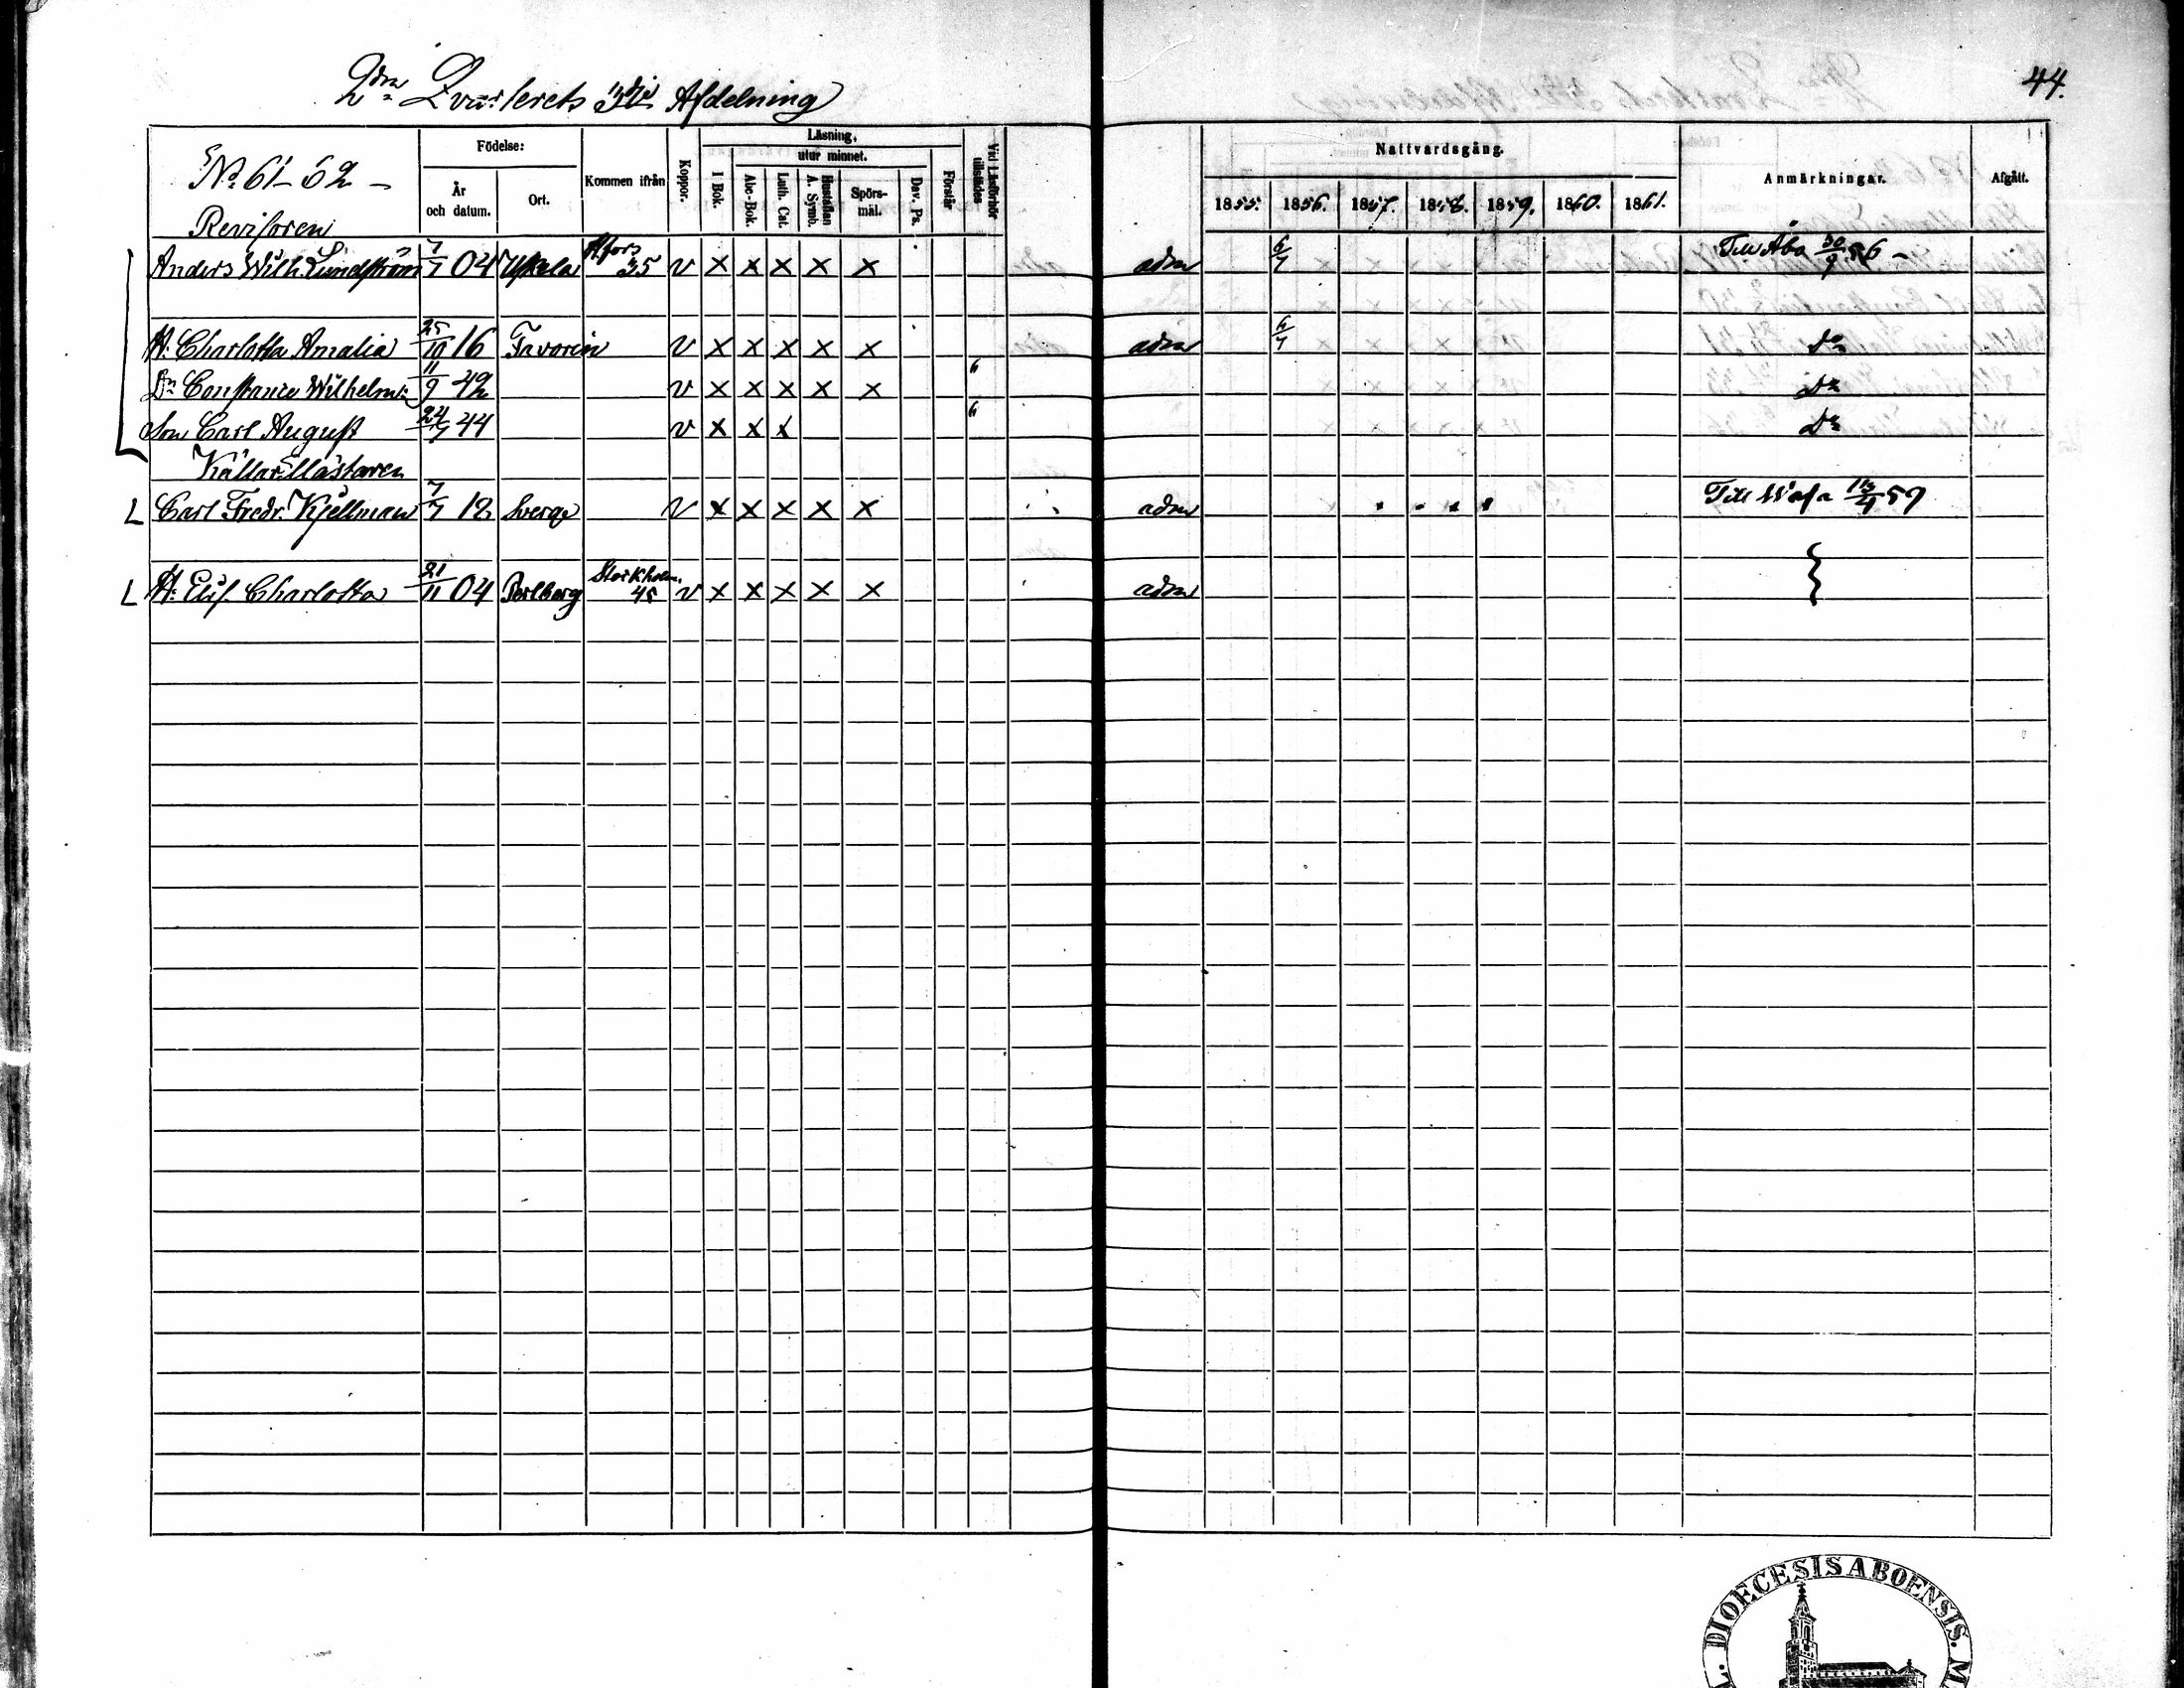 2dra Qvarterets 3dje Afdelning
44.
No 61-62 -
Födelse:
År och datum.
Ort.
Kommen ifrån
Koppor.
Läsning.
utur minnet.
I Bok.
Abc-Bok.
Luth. Cat.
Hustaflan A. Symb.
Spörs-mål.
Dav. Ps.
Förstår
Vid Läsförhör tillstädes
Nattvardsgång.
1855. 1856. 1857. 1858. 1859. 1860. 1861.
Anmärkningar.
Afgått.
Revisoren
Anders Wilh. Lundström 7/7 04 Uskela Hfors 35 v x x x x x adm 6/7 Till Åbo 30/9 56 -
H: Charlotta Amalia 25/10 16 Favorin v x x x x x adm 6/7 Do
Dr Constance Wilhelm: 11/9 42 v x x x x x 6 Do
Son Carl August 24/7 44 v x x x 6 Do
Källarmästaren
L Carl Fredr. Kjellman 7/7 12 Sverge v x x x x x adm Till Wasa 57
L H: Elis. Charlotta 21/11 04 Perlberg Stockholm. 45 v x x x x x adm
DIOECESIS ABOENSIS.